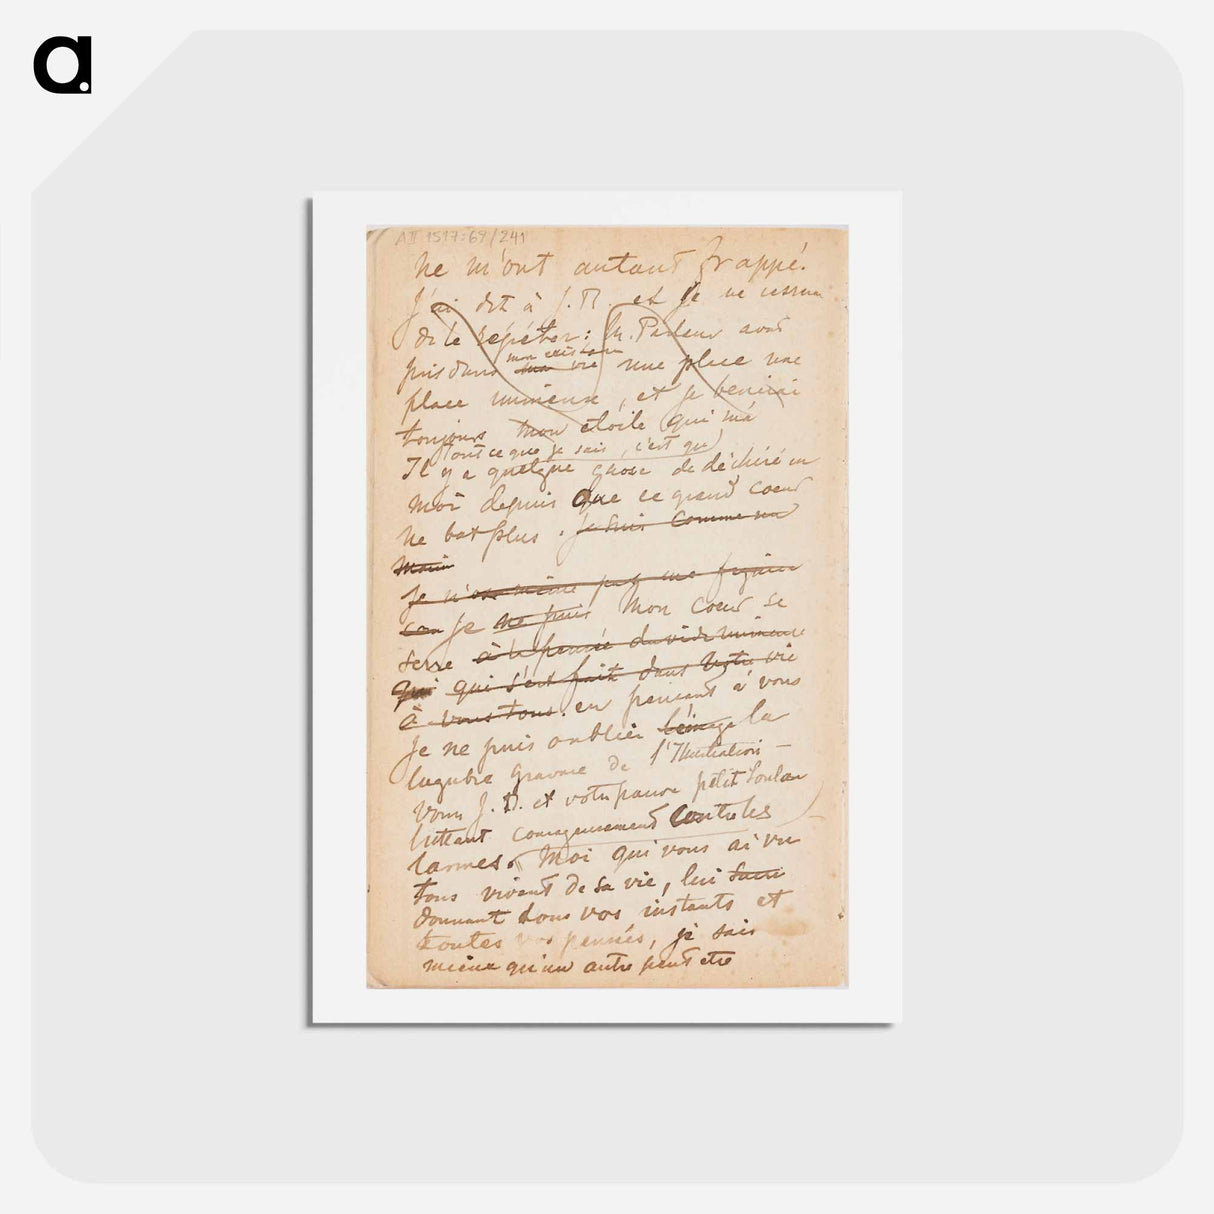 a.
AII 1517:69/241
ne m'ont autant frappé.
J'ai dit à J.B. et je ne cesse
de le répéter: M. Pasteur avait
pris dans ma vie mon existence une place une
place immense, et je benirai
toujours mon étoile qui m'a
Tout ce que je sais, c'est qu'
Il y a quelque chose de déchiré en
moi depuis que ce grand coeur
ne bat plus. je suis comme un
marin
Je n'ose même pas me figurer
son Je ne puis Mon coeur se
serre à la pensée du vide immense
qui qui s'est fait dans votre vie
à vous tous. en pensant à vous
Je ne puis oublier l'image la
lugubre gravure de l'Illustration —
vous J.B. et votre pauvre petit
luttant courageusement contre les
larmes. Moi qui vous ai vu
tous vivant de sa vie, lui
donnant tous vos instants et
toutes vos pensées, je sais
mieux qu'un autre peut être